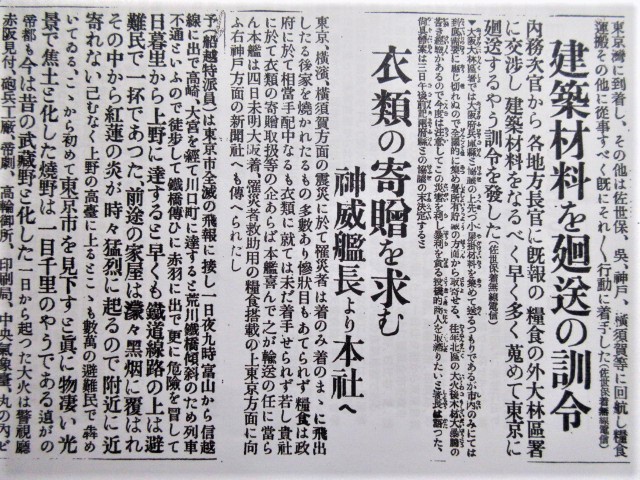 東京灣に到着し、その他は佐世保、吳、神戸、橫須賀等に回航し糧食
運搬その他に從事すべく既にそれ〲行動に着手した(佐世保着無線電信)
建築材料を廻送の訓令
内務次官から各地方長官に既報の糧食の外大林區署
に交涉し建築材料をなるべく早く多く蒐めて東京に
廻送するやう訓令を發した(佐世保着無線電信)
衣類の寄贈を求む
神威艦長より本社へ
東京、橫濱、橫須賀方面の震災に於て罹災者は着のみ着のまゝに飛出
したる後家を燒かれたるもの多數あり慘狀目もあてられず糧食は政
府に於て相當手配中なるも衣類に就ては未だ着手せられず若し貴社
に於て衣類の寄贈取扱等の企あらば本艦喜んで之が輸送の任に當ら
ん本艦は四日未明大阪着、罹災者救助用の糧食搭載の上東京方面に向
ふ右神戸方面の新聞社へも傳へられたし
予(船越特派員)は東京市全滅の飛報に接し一日夜九時富山から信越
線に出で高崎、大宮を經て川口町に達すると荒川鐵橋傾斜のため列車
不通といふので徒步して鐵橋傳ひに赤羽に出で更に危險を冒して
日暮里から上野に達すると早くも鐵道線路の上は避
難民で一杯であつた、前途の家屋は濛々黑烟に覆はれ
その中から紅蓮の炎が時々猛烈に起るので附近に近
寄れない已むなく上野の高臺に上るとこゝも數萬の避難民で犇め
いてゐる、こゝから初めて東京市を見下すと眞に物凄い光
景で焦土と化した燒野は一目千里のやうである遠がの
帝都も今は昔の武藏野と化した一日から起つた大火は警視廳
赤阪見付、砲兵工廠、帝劇、高輪御所、印刷局、中央氣象臺、丸の内ビ